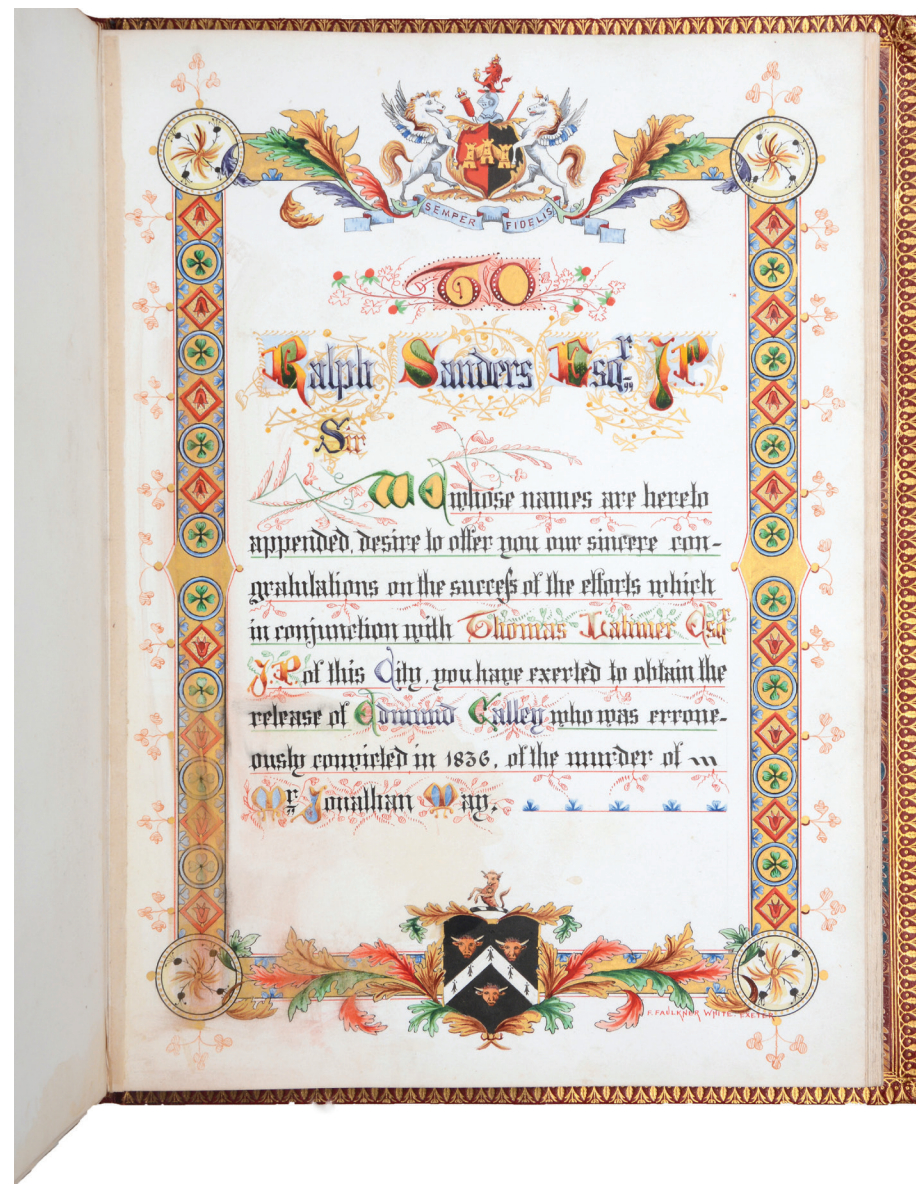 SEMPER FIDELIS
TO
Ralph Sanders Esqr. J.P.
Sir
We whose names are hereto
appended, desire to offer you our sincere con-
gratulations on the success of the efforts which
in conjunction with Thomas Latimer Esqr
J.P. of this City, you have exerted to obtain the
release of Edmund Galley who was errone-
ously convicted in 1836, of the murder of
Mr. Jonathan May.
F. FAULKNER WHITE. EXETER